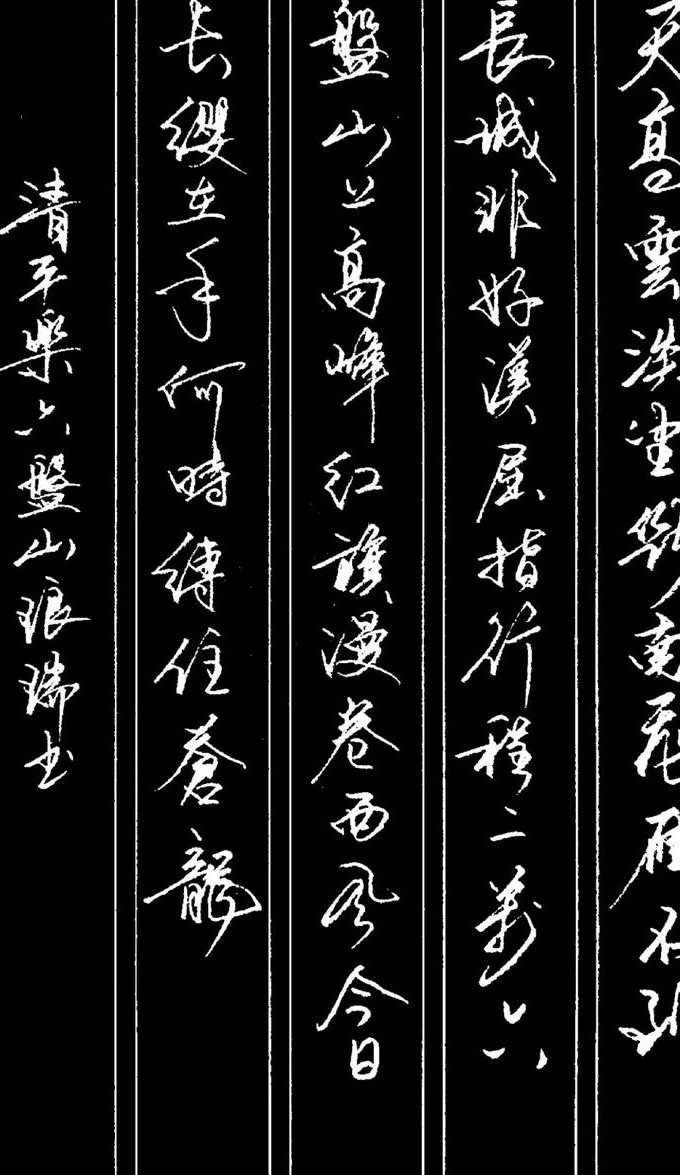 天高雲淡望斷南飛雁不到
長城非好漢屈指行程二萬六
盤山上高峰紅旗漫卷西風今日
长纓在手何時縛住蒼龍
清平樂六盤山琅瑞书